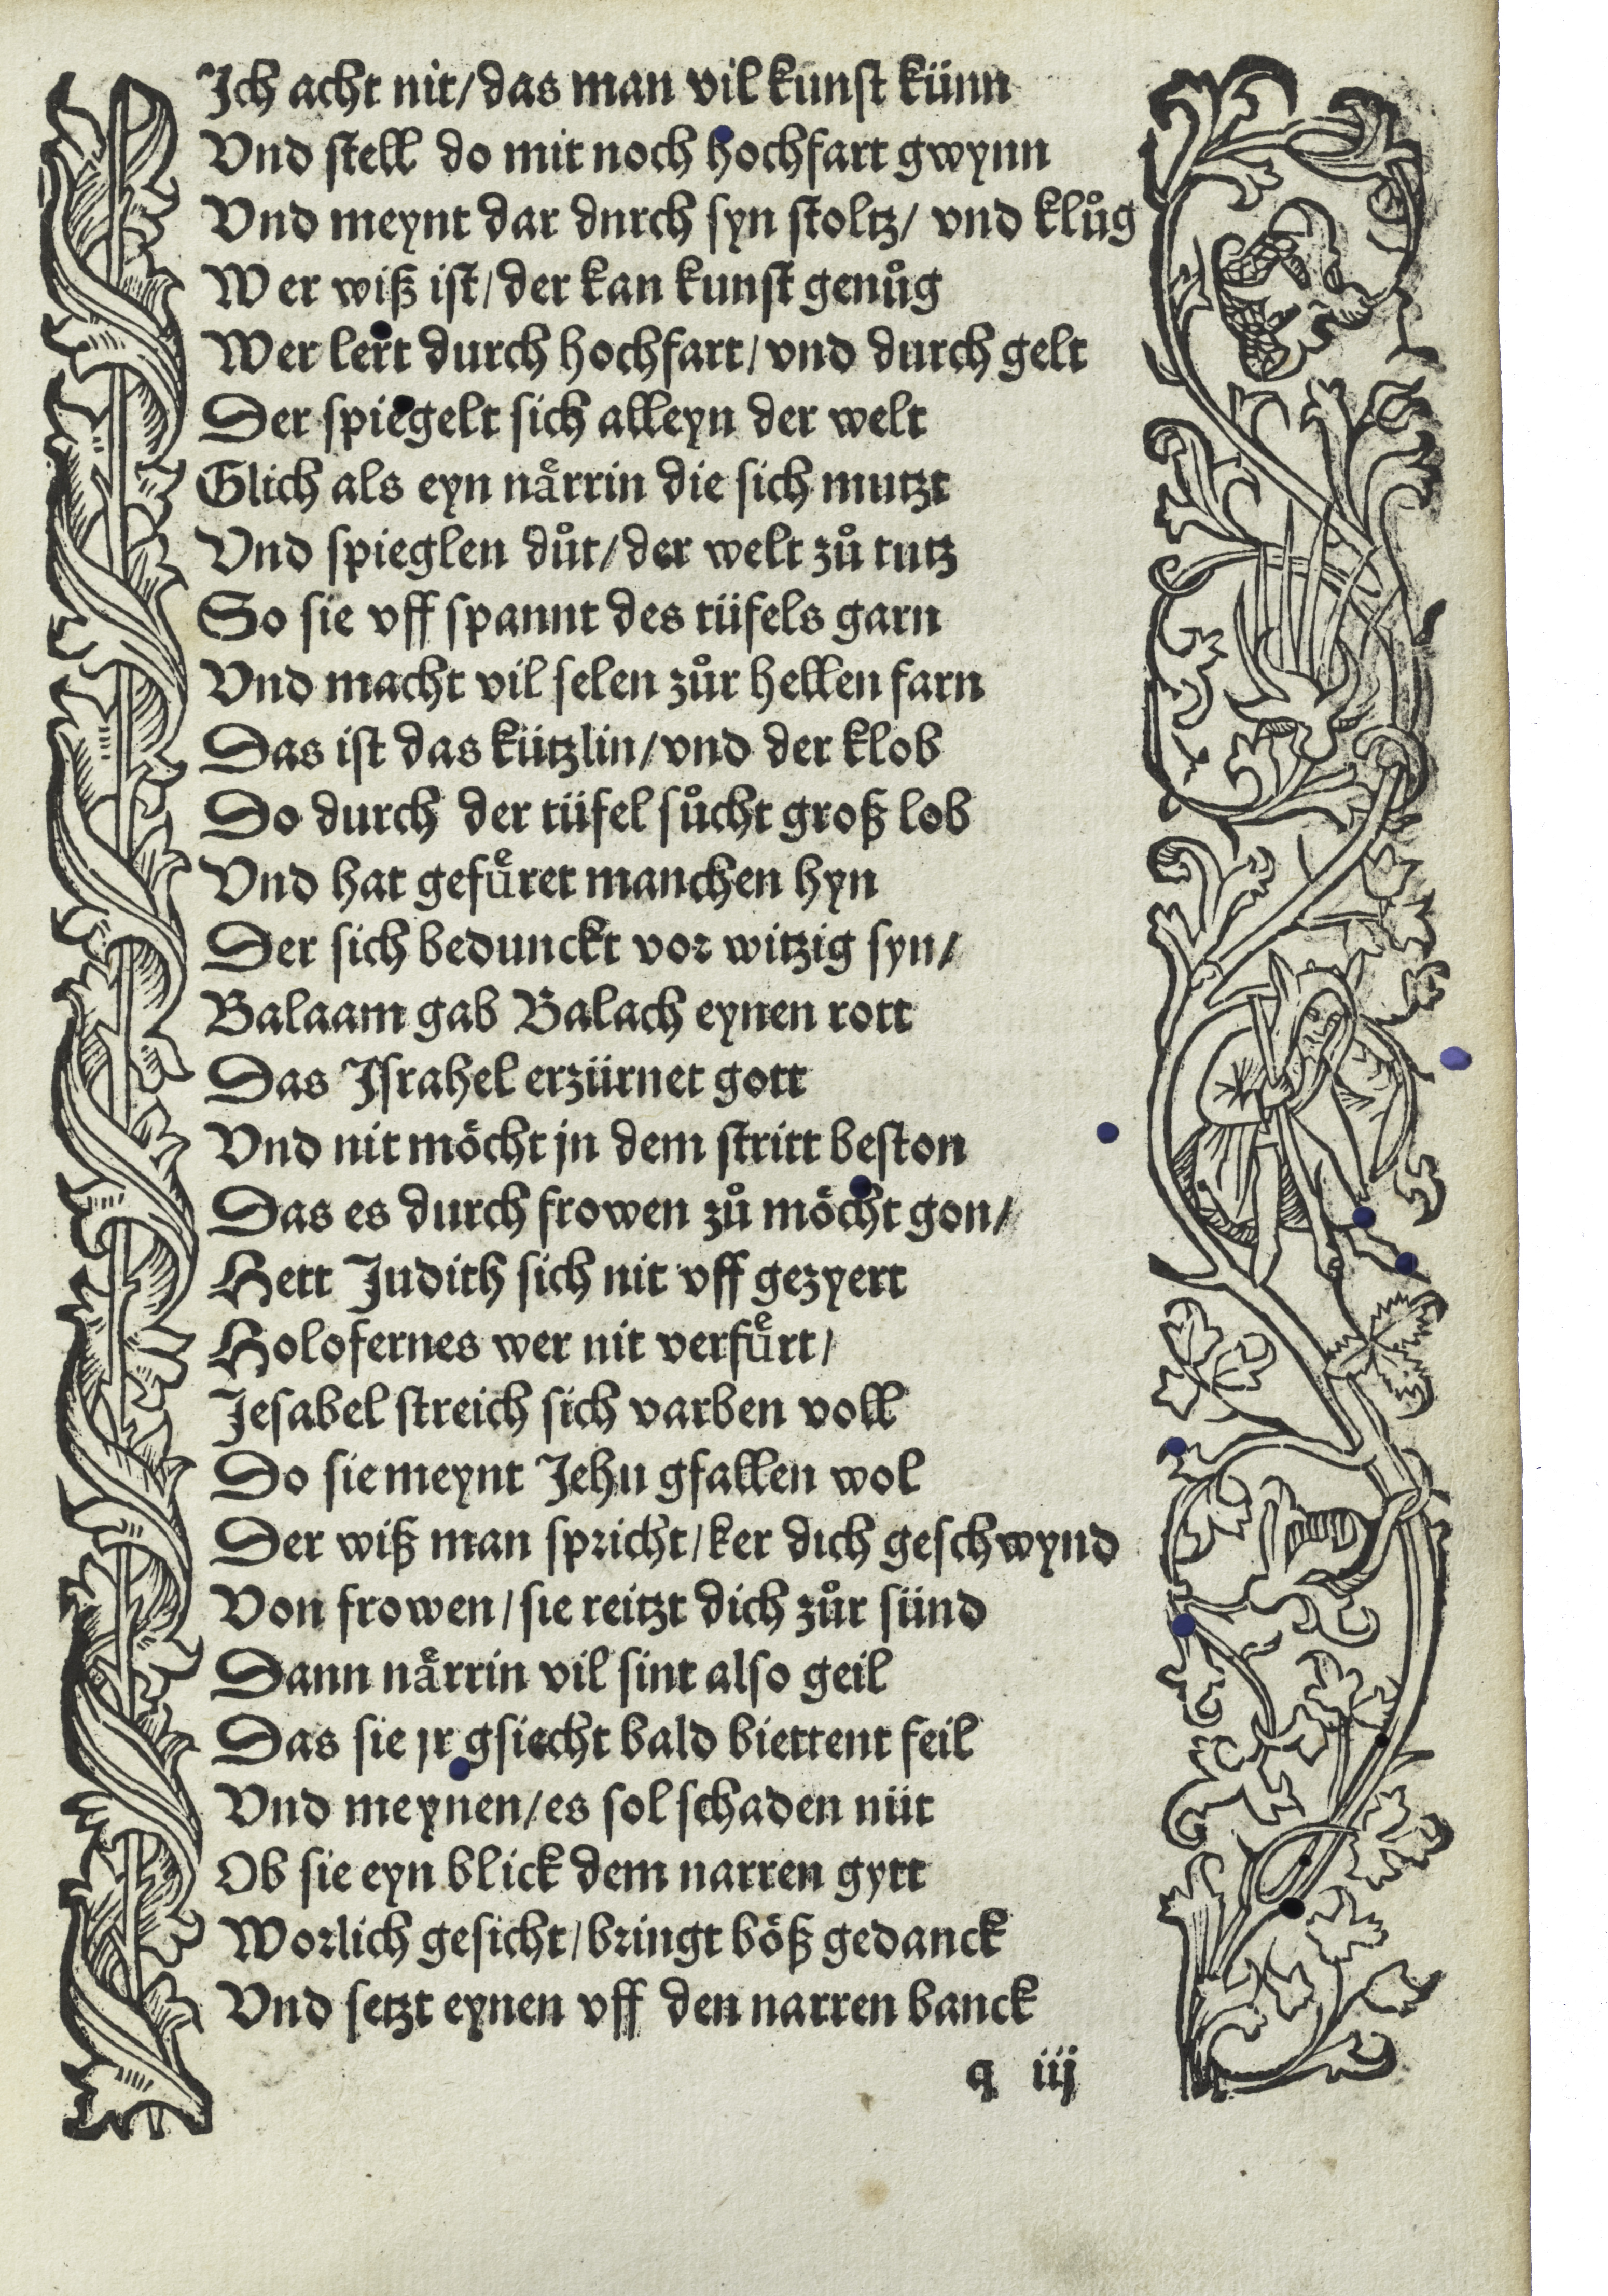 Ich acht nit/das man vil kunst künn
Vnd stell do mit noch hochfart gwynn
Vnd meynt dar dnrch syn stoltz/ vnd klůg
Wer wiß ist/der kan kunst genůg
Wer lert durch hochfart/vnd durch gelt
Der spiegelt sich alleyn der welt
Glich als eyn naͤrrin die sich mutzt
Vnd spieglen důt/der welt zů tutz
So sie vff spannt des tüfels garn
Vnd macht vil selen zůr hellen farn
Das ist das kützlin/vnd der klob
Do durch der tüfel sůcht groß lob
Vnd hat gefuͤret manchen hyn
Der sich bedunckt vor witzig syn/
Balaam gab Balach eynen rott
Das Israhel erzürnet gott
Vnd nit möcht jn dem stritt beston
Das es durch frowen zů möcht gon/
Hett Judith sich nit vff gezyert
Holofernes wer nit verfuͤrt/
Jesabel streich sich varben voll
Do sie meynt Jehu gfallen wol
Der wiß man spricht/ker dich geschwynd
Von frowen/sie reitzt dich zůr sünd
Dann naͤrrin vil sint also geil
Das sie jr gsiecht bald biettent feil
Vnd meynen/es sol schaden nüt
Ob sie eyn blick dem narren gytt
Worlich gesicht/bringt böß gedanck
Vnd setzt eynen vff den narren banck
q iij